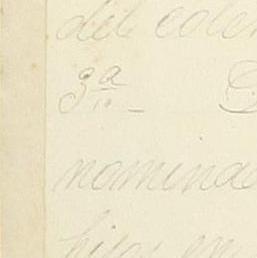 del cole
3ª
nomina
hijos en